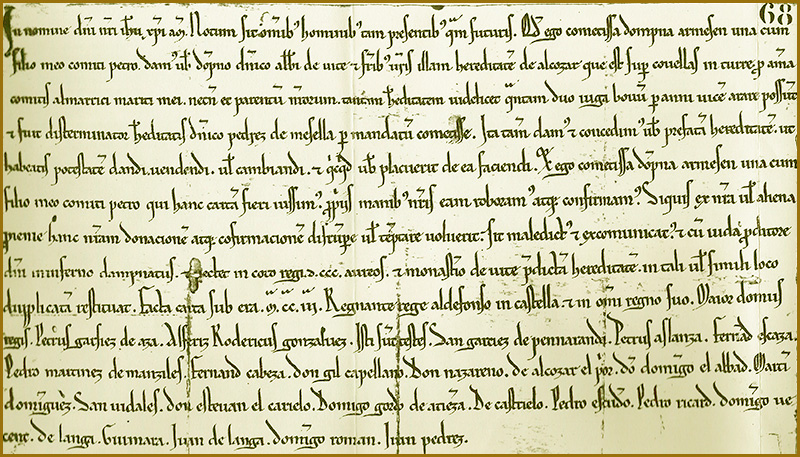 68
In nomine dñi nr̃i ihũ xp̃i am̃. Notum sit om̃ib' hominib' tam presentib' qm̃ futuris. Qd̃ ego cometissa dompna armesen una cum
filio meo comiti petro. dam' ub̃. dõpno dñico abb̃i de uite & fr̃ib' ur̃is illam hereditatẽ de alcozar que est sup̃ couellas in turre. p̃ aĩa
comitis almarrici mariti mei. necñ et parentũ ñrorum. tantũm h̃editatem uidelicet q̃ntam duo iuga bouũ p̃ anni uicẽ arare possũt
& fuit disterminator h̃editatis dñico pedrez de mesella p̃ mandatũ comitisse. Ita tam̃ dam' & concedim' ub̃ prefatã hereditatẽ. ut
habeatis potestatẽ dandi. uendendi. ul̃ cambiandi. & q̃cq̃d ub̃ placuerit de ea faciendi. Et ego cometissa dõpna armesen una cum
filio meo comiti petro qui hanc cartã fieri iussim'. p̃priis manib' nr̃is eam roboram' atq; confirmam'. Siquis ex nr̃a ul̃ aliena
p̃ienie hanc nr̃am donacionẽ atq; cõfirmacionẽ disrũpe ul̃ tẽptare uoluerit. sit maledict' & excomunicat'. & cũ iuda p̃ditore
dñi in inferno dampnatus. & pectet in coto regi. d. ccc. aureos. & monast'io de uite p̃dictã hereditatẽ. in tali ul̃ simili loco
duplicatã restituat. Facta carta sub era. m̃. c̃c. iii. Regnante rege aldefonso in castella & in om̃i regno suo. Maior domus
regis. Petrus garsiez de aza. Alferiz Rodericus gonzaluez. Isti sũt testes. San garciez de pennarandã. Petrus aslanza. Ferrãd escaza.
Pedro martinez de manziles. Fernand cabeza. don gil capellano. Don nazareno. de alcozar el p̃or. dõ domĩgo el albad. Martĩ
domĩguez. San uidales. don esteuan el carielo. Domigo gordo de atieza. De castrielo. Pedro escudo. Pedro ricard. domĩgo ue
cent. de langa. Guimara. Juan de langa. domĩgo roman. Juan pedrez.